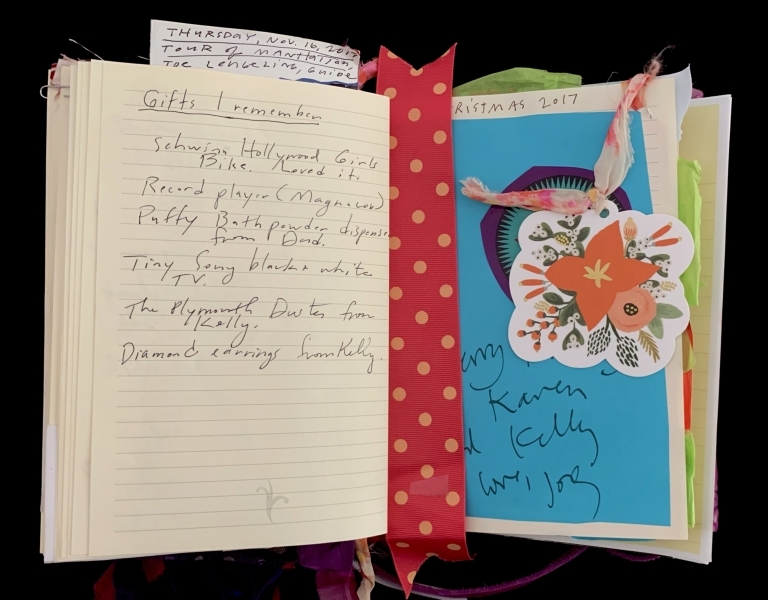 THURSDAY, NOV. 16, 2017
TOUR OF MANHATTAN,
JOE LENGELING, GUIDE
Gifts I remember
Schwinn Hollywood Girls
Bike. Loved it.
Record player (Magnavox)
Puffy Bath powder dispenser
from Dad.
Tiny Sony black & white
TV.
The Plymouth Duster from
Kelly.
Diamond earrings from Kelly.
RISTMAS 2017
erry
Karen
Kelly
Love, Joey